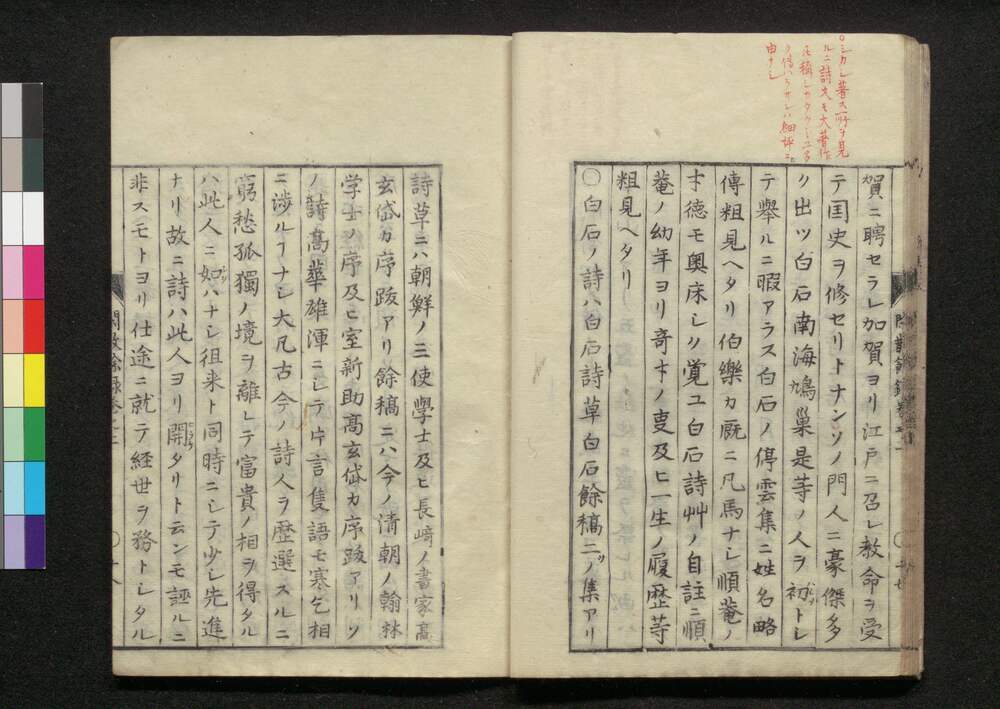 ○シカレ著ス所ヲ見
ルニ詩文モ大著作
由ナシ
賀ニ聘セラレ加賀ヨリ江戸ニ召レ教命ヲ受
テ国史ヲ修セリトナンソノ門人ニ豪傑多
ク出ツ白石南海鳩巣是等ノ人ヲ初トレ
テ舉ルニ暇アラス白石ノ停雲集ニ姓名略
傳粗見ヘタリ伯樂カ厩ニ凡馬ナレ順菴ノ
才德モ奥床シク覚ユ白石詩艸ノ自註ニ順
菴ノ幼年ヨリ奇才ノ叓及ヒ一生ノ履歴等
粗見ヘタリ
○白石ノ詩ハ白石詩草白石餘稿二ツノ集アリ
詩草ニハ朝鮮ノ三使學士及ヒ長崎ノ書家高
玄岱カ序跋アリ餘稿ニハ今ノ清朝ノ翰林
学士ノ序及ヒ室新助高玄岱カ序跋アリソ
ノ詩高華雄渾ニレテ片言隻語モ寒乞相
ニ渉ルヿナシ大凡古今ノ詩人ヲ歴選スルニ
窮愁孤獨ノ境ヲ離レテ富貴ノ相ヲ得タル
ハ此人ニ如ハナシ徂来ト同時ニシテ少レ先進
ナリ故ニ詩ハ此人ヨリ開タリト云ンモ誣ルニ
非スモトヨリ仕途ニ就テ経世ヲ務トレタル